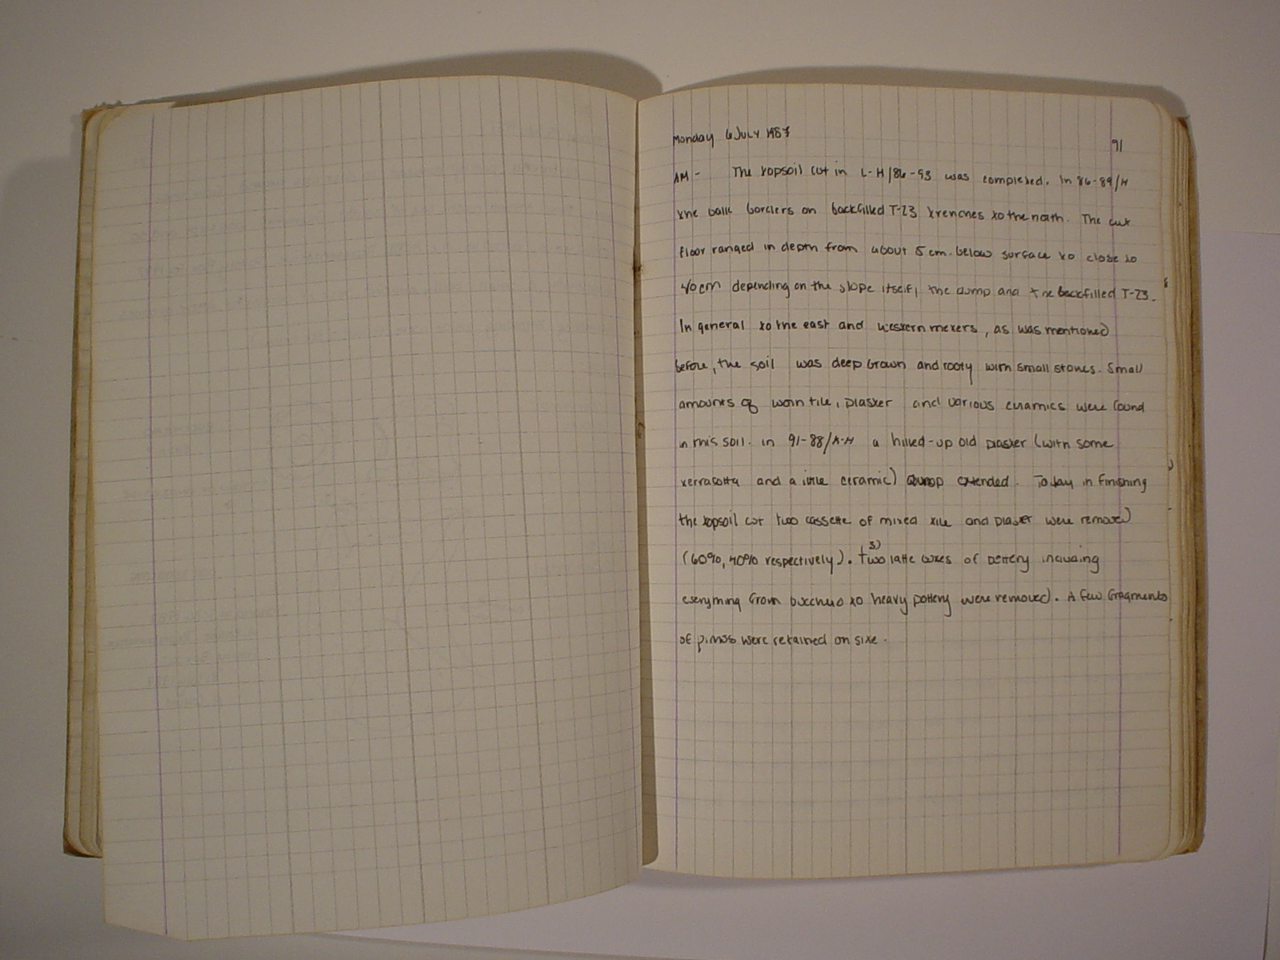 Monday 6 July 1987
91
AM - The topsoil cut in L-H/86-93 was completed. In 86-89/H
the balk borders on backfilled T-23 trenches to the north. The cut
floor ranged in depth from about 5 cm. below surface to close to
40cm depending on the slope itself, the dump and the backfilled T-23.
In general to the east and western meters, as was mentioned
before, the soil was deep brown and rooty with small stones. Small
amounts of worn tile, plaster and various ceramics were found
in this soil. in 91-88/A-H a hilled-up old plaster (with some
terracotta and a little ceramic) dump extended. Today in finishing
the topsoil cut two cassette of mixed tile and plaster were removed
(60%, 40% respectively). Two latte boxes of pottery including
everything from bucchero to heavy pottery were removed. A few fragments
of pithos were retained on site.